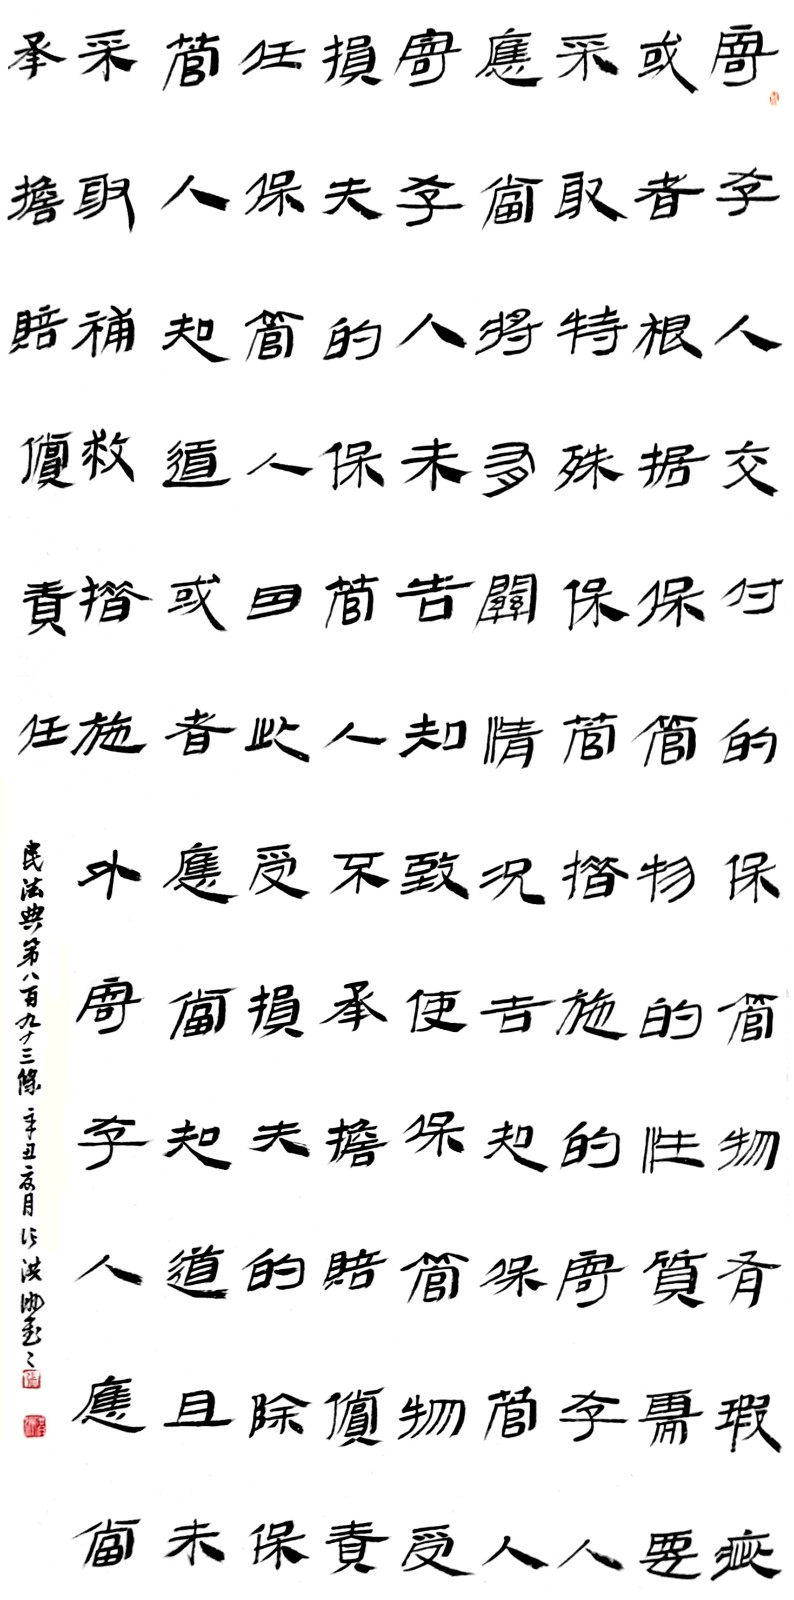 寄存人交付的保管物有瑕疵
或者根据保管物的性質需要
采取特殊保管措施的寄存人
應當將有關情况告知保管人
寄存人未告知致使保管物受
損失的保管人不承擔賠償責
任保管人因此受損失的除保
管人知道或者應當知道且未
采取補救措施外寄存人應當
承擔賠償責任
民法典第八百九十三條 辛丑夏月